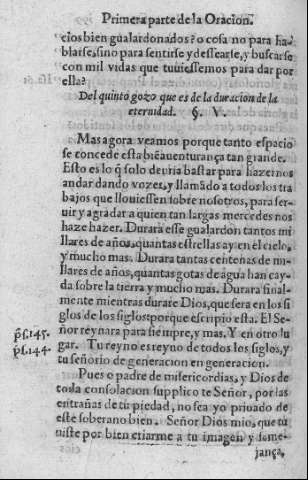 Primera parte de la Oracion.
cios bien gualardonados? o cosa no para ha-
blarse, sino para sentirse y dessearse, y buscarse
con mil vidas que tuuiessemos para dar por
ella?
Del quinto gozo que es de la duracion de la
eternidad. §. V.
Mas agora veamos porque tanto espacio
se concede esta biēauenturança tan grande.
Esto es lo q̃ solo deuria bastar para hazernos
andar dando vozes, y llamãdo a todos los tra
bajos que llouiessen sobre nosotros, para ser-
uir y agradar a quien tan largas mercedes nos
haze hazer. Durara esse gualardon tantos mi
llares de años, quantas estrellas ay en el cielo,
y mucho mas. Durara tantas centenas de mi-
llares de años, quantas gotas de agua han cay-
da sobre la tierra y mucho mas. Durara final-
mente mientras durare Dios, que sera en los si
glos de los siglos: porque escripto esta. El Se-
ps. 145. ñor reynara para siempre, y mas. Y en otro lu
ps. 144. gar. Tu reyno es reyno de todos los siglos, y
tu señorio de generacion en generacion.
Pues o padre de misericordias, y Dios de
toda consolacion supplico te Señor, por las
entrañas de tu piedad, no sea yo priuado de
este soberano bien. Señor Dios mio, que tu
uiste por bien criarme a tu imagen y seme-
jança,